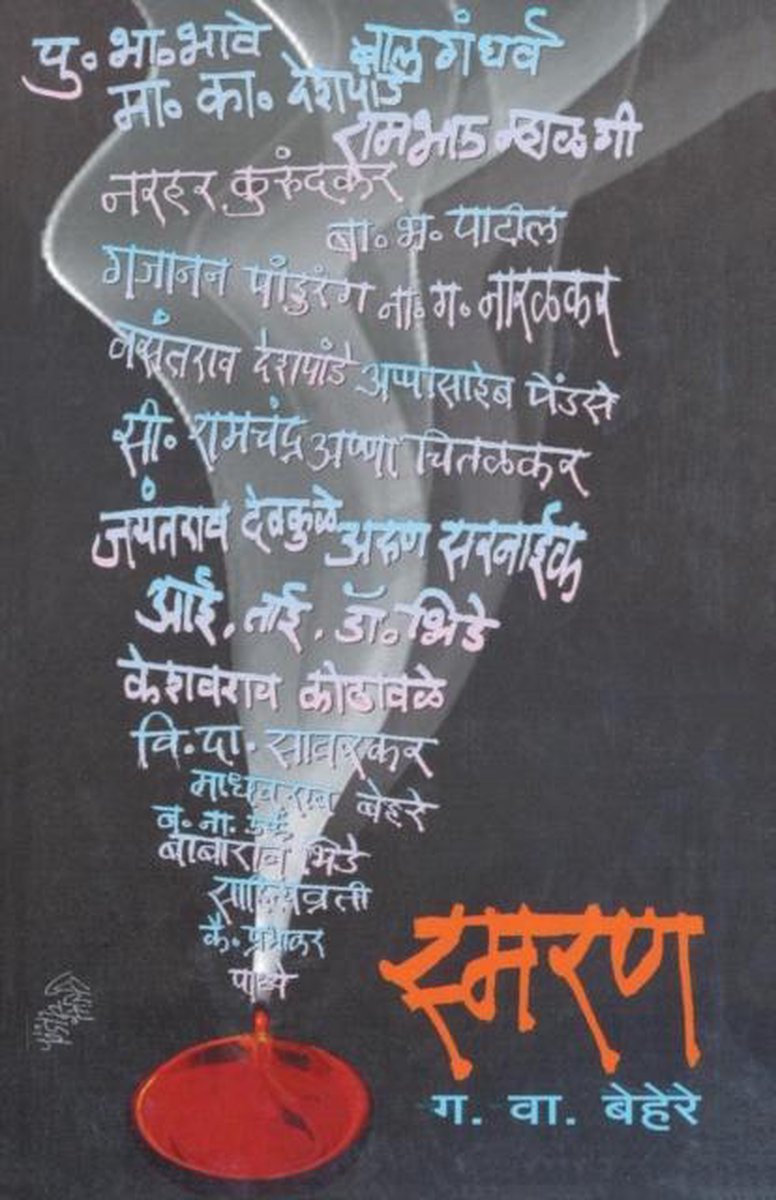 पु. भा. भावे बालगंधर्व
मा. का. देशपांडे
रामभाऊ म्हाळगी
नरहर कुरुंदकर
बा. भ. पाटील
गजानन पांडुरंग ना. ग. नारळकर
वसंतराव देशपांडे अप्पासाहेब पेंडसे
सी. रामचंद्र अण्णा चितळकर
जयंतराव देवकुळे अरुण सरनाईक
आई. ताई. डॉ. भिडे
केशवराव कोठावळे
वि. दा. सावरकर
माधवराव बेहरे
बाबाराव भिडे
साहित्यव्रती
कै. प्रभाकर
पाध्ये
स्मरण
ग. वा. बेहेरे